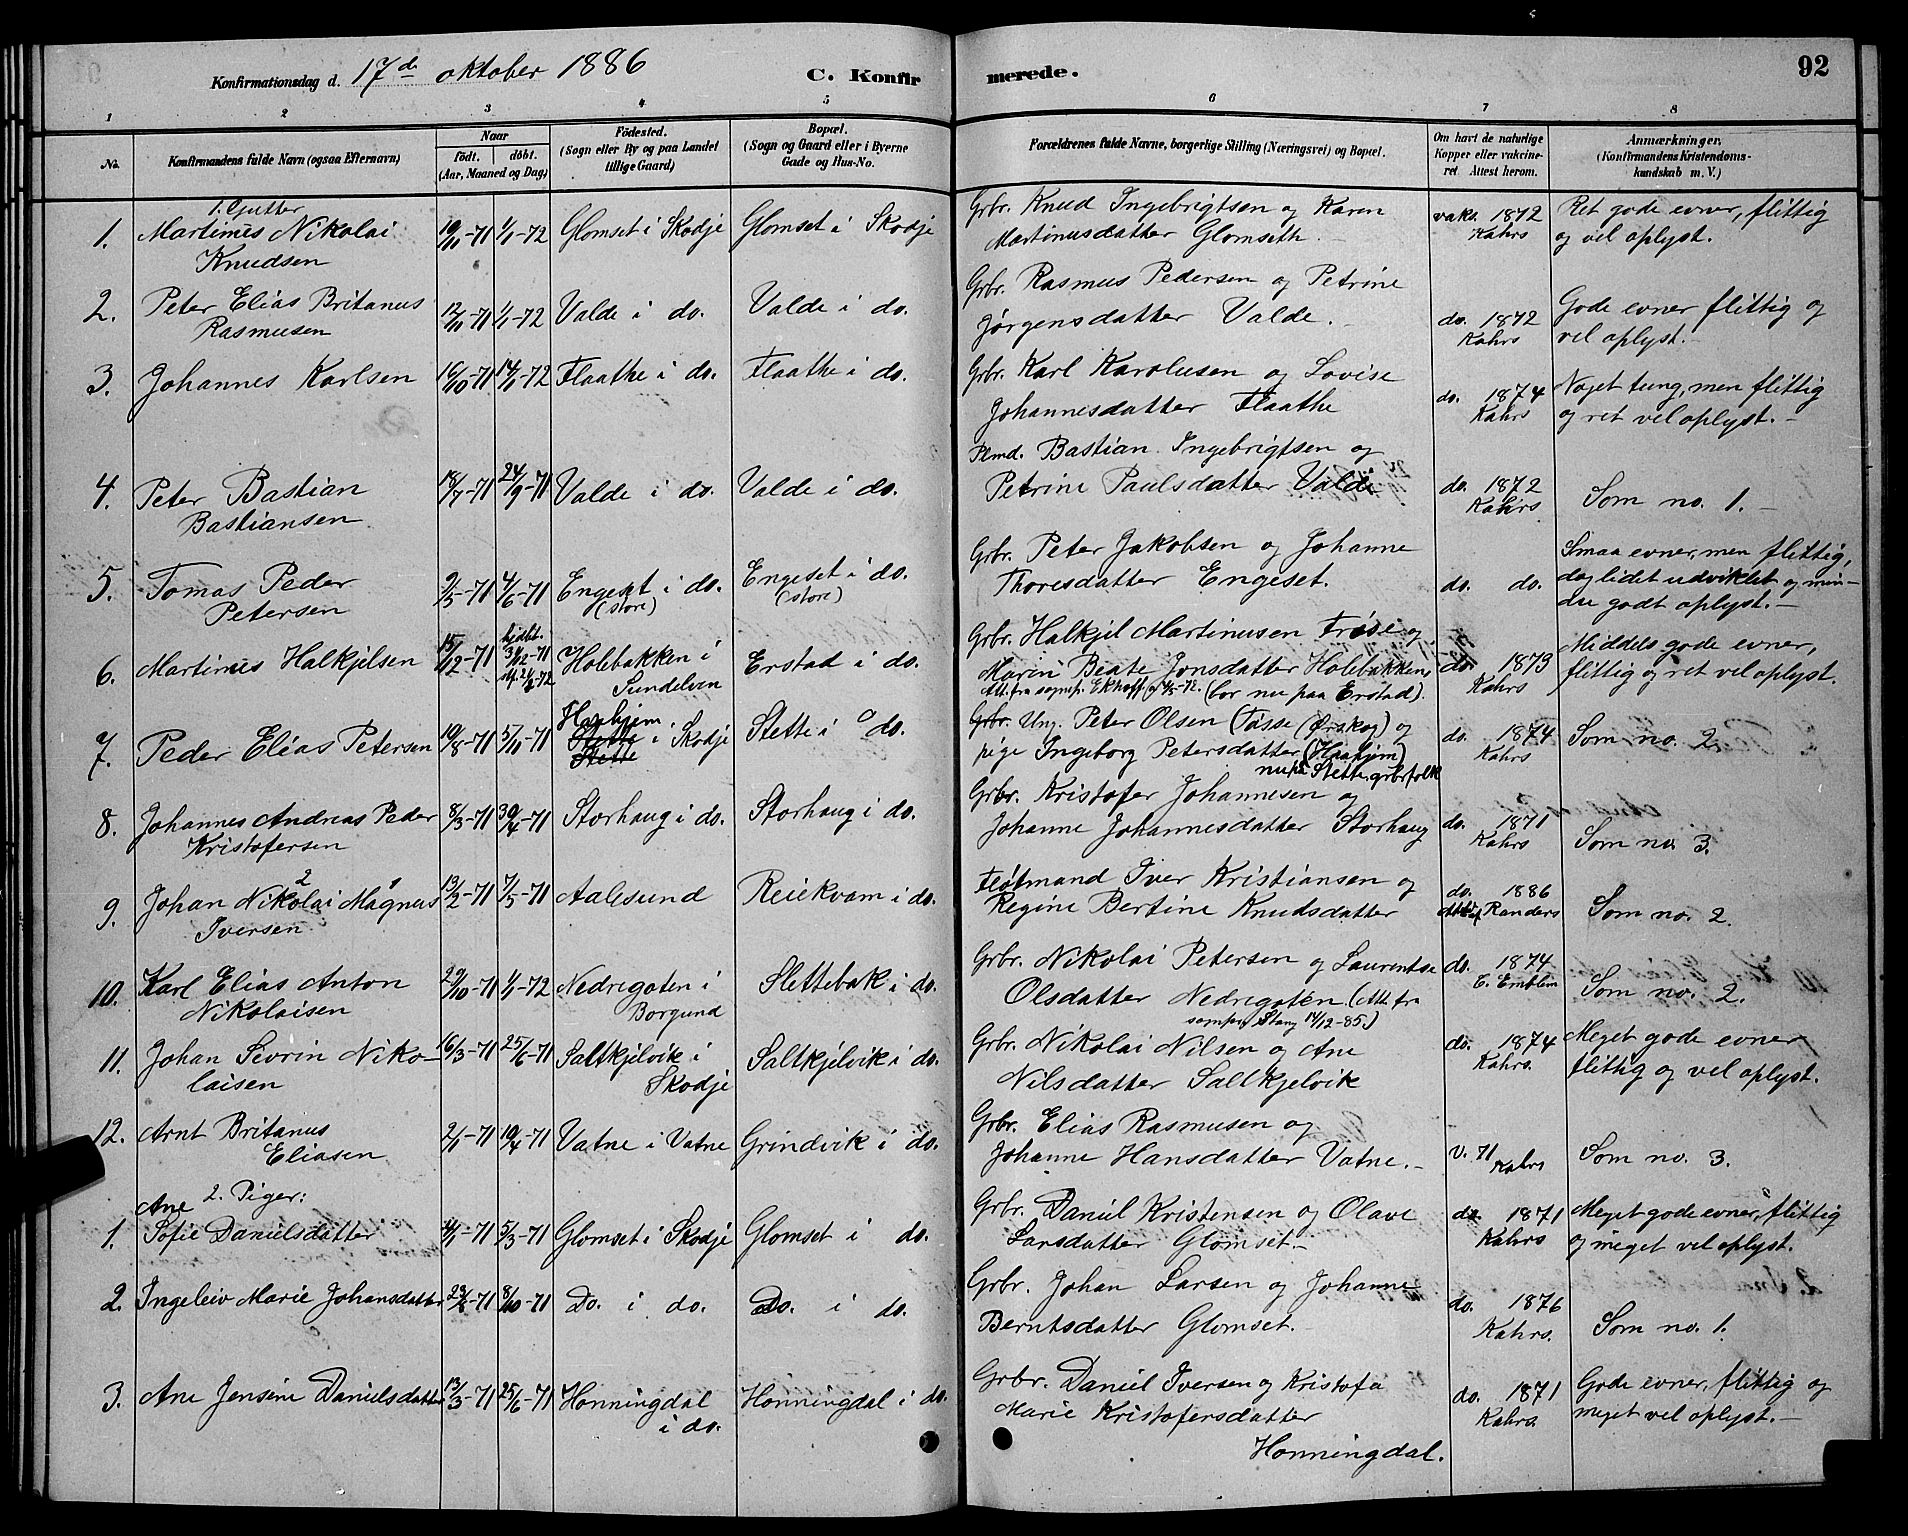 Konfirmationsdag d. 17d. oktober 1886
C. Konfirmerede.
92
1 2 3 4 5 6 7 8
No. Konfirmandens fulde Navn (ogsaa Efternavn)
Naar
födt. döbt.
(Aar, Maaned og Dag)
Födested.
(Sogn eller By og paa Landet
tillige Gaard)
Bopæl.
(Sogn og Gaard eller i Byerne
Gade og Hus-No.
Forældrenes fulde Navne, borgerlige Stilling (Næringsvei) og Bopæl.
Om havt de naturlige
Kopper eller vakcine-
ret Attest herom.
Anmærkninger.
(Konfirmandens Kristendoms-
kundskab m. V.)
1. Gutter
1. Martinus Nikolai
Knudsen
19/11-71 1/1-72 Glomset i Skodje Glomset i Skodje
Grbr. Knud Ingebrigtsen og Karen
Martinusdatter Glomseth
vaks. 1872
Kahrs
Ret gode evner, flittig
og vel oplyst.
2. Peter Elias Britanus
Rasmusen
12/11-71 1/1-72 Valde i do. Valde i do.
Grbr. Rasmus Pedersen og Petrine
Jørgensdatter Valde.
do. 1872
Kahrs
Gode evner flittig og
vel oplyst.-
3. Johannes Karlsen 16/10-71 14/1-72 Flaathe i do. Flaathe i do.
Grbr. Karl Karolusen og Lovise
Johannesdatter Flaathe
do. 1874
Kahrs
Noget tung, men flittig
og ret vel oplyst.-
4. Peter Bastian
Bastiansen
18/7-71 24/9-71 Valde i do. Valde i do.
Plmd. Bastian Ingebrigtsen og
Petrine Paulsdatter Valde
do. 1872
Kahrs
Som no. 1.-
5. Tomas Peder
Petersen
9/5-71 4/6-71 Engeset i do.
(store)
Engeset i do.
(store)
Grbr. Peter Jakobsen og Johanne
Thoresdatter Engeset.
do. do.
Smaa evner, men flittig,
dog lidet udviklet og min-
dre godt oplyst.-
6. Martinus Halkjelsen 15/12-71 hjdbt.
31/12-71
Holebakken i
Sundelven
Erstad i do.
Grbr. Halkjel Martinusen Frøise og
Marin Beate Jonsdatter Holebakken
(bor nu paa Erstad).
do. 1873
Kahrs
Middels gode evner,
flittig og ret vel oplyst.
7. Peder Elias Petersen 19/8-71 5/11-71 Haahjem
Stette i Skodje
Stette
Stette i do.
Grbr. Ung. Peter Olsen (Tusse (Ørskog) og
pige Ingeborg Petersdatter (Haahjem)
nu på Stette, grbrfolk
do. 1874
Kahrs
Som no. 2
8. Johannes Andreas Peder
Kristofersen
8/3-71 30/4-71 Storhaug i do. Storhaug i do.
Grbr. Kristofer Johannesen og
Johanne Johannesdatter Storhaug
do. 1871
Kahrs
Som no. 3.
9. Johan Nikolai Magnus
Iversen
13/2-71 7/5-71 Aalesund Reiekvam i do.
Fløtmand Iver Kristiansen og
Regine Bertine Knudsdatter
do. 1886
Att. af Randers
Som no. 2.
10. Karl Elias Anton
Nikolaisen
29/10-71 1/1-72 Nedregoten i
Borgund
Slettebak i do.
Grbr. Nikolai Petersen og Laurentse
Olsdatter Nedregoten (Att. fra
sognpr. Stang 14/12-85.)
do. 1874
E. Emblem
Som no. 2.
11. Johan Sevrin Niko-
laisen
16/3-71 25/6-71 Saltkjelvik i
Skodje
Saltkjelvik i do.
Grbr. Nikolai Nilsen og Ane
Nilsdatter Saltkjelvik
do. 1874
Kahrs.
Meget gode evner
flittig og vel oplyst.
12. Arnt Britanus
Eliasen
2/1-71 10/4-71 Vatne i Vatne Grindvik i do.
Grbr. Elias Rasmusen og
Johanne Hansdatter Vatne.-
v. 71 Kahrs
Som no. 3.
2. Piger:
1. Ane
Sofie Danielsdatter
5/3-71 Glomset i Skodje Glomset i do.
Grbr. Daniel Kristensen og Olave
Larsdatter Glomset-
do. 1871
Kahrs
Meget gode evner, flittig
og meget vel oplyst.
2. Ingeleiv Marie Johansdatter 8/10-71 Do. i do. Do. i do.
Grbr. Johan Larsen og Johanne
Berntsdatter Glomset.-
do. 1876
Kahrs.
Som no. 1.
3. Ane Jensine Danielsdatter 13/3-71 25/6-71 Honningdal
i do.
Honningdal i do.
Grbr. Daniel Iversen og Kristofa
Marie Kristofersdatter
Honningdal.
do. 1871
Kahrs
Gode evner, flittig og
meget vel oplyst.-